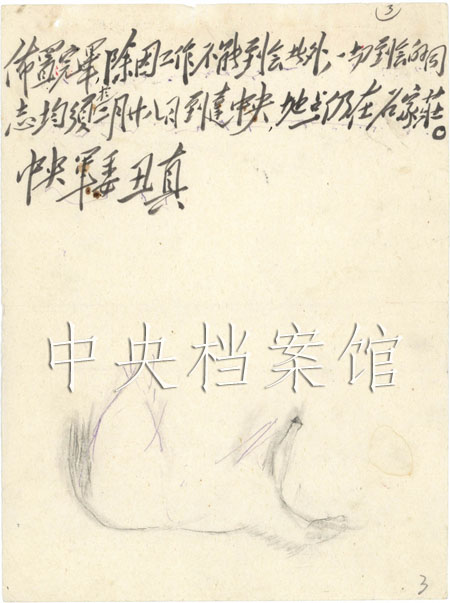 3
佈置完畢,除因工作不能到会者外,一切到会的同
志均须於二月廿八日到達中央,地点仍在石家莊。
中央軍委丑真
中央档案馆
3